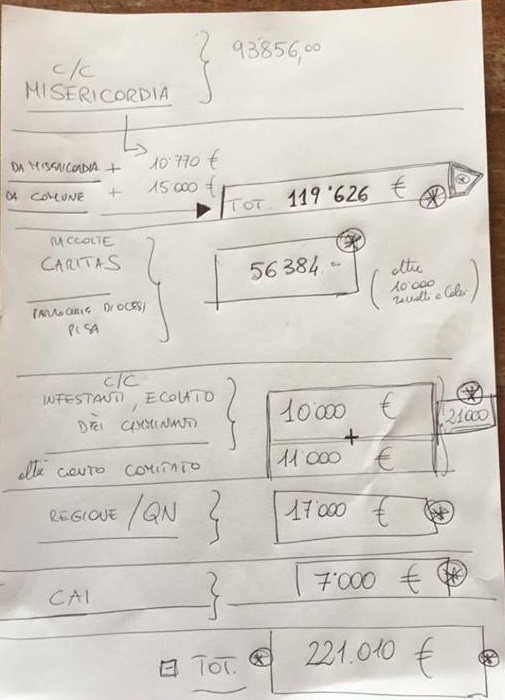 c/c 93'856,00
MISERICORDIA
DA MISERICORDIA + 10'770 €
DA COMUNE + 15'000 €
TOT. 119'626 €
RACCOLTE
CARITAS
56384.=
PARROCCHIE DIOCESI
PISA
(oltre
10'000
raccolti a Calci)
c/c
INFESTANTI, ECOLATO
DEI CAMMINANTI
10'000 €
+
21'000
altri conto COMITATO 11'000 €
REGIONE / QN 17'000 €
CAI 7'000 €
TOT. 221.010 €